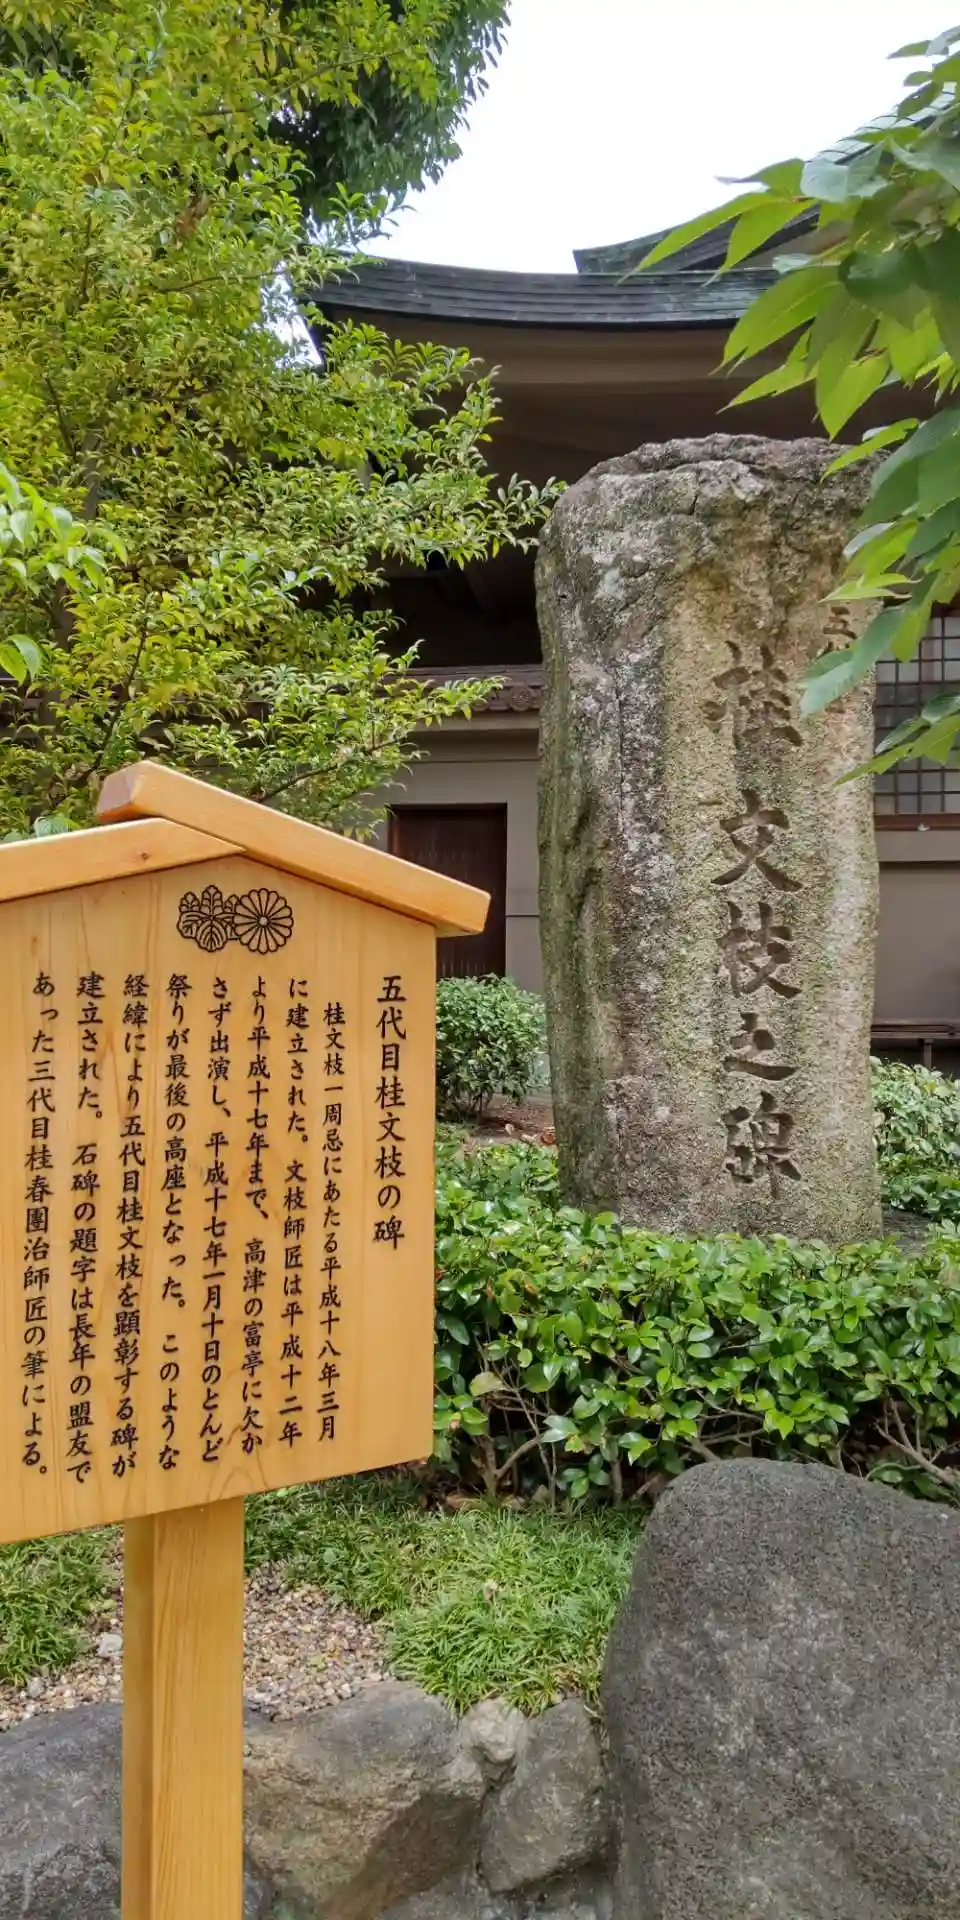 五代目桂文枝の碑
桂文枝一周忌にあたる平成十八年三月
に建立された。文枝師匠は平成十二年
より平成十七年まで、高津の富亭に欠か
さず出演し、平成十七年一月十日のとんど
祭りが最後の高座となった。このような
経緯により五代目桂文枝を顕彰する碑が
建立された。石碑の題字は長年の盟友で
あった三代目桂春團治師匠の筆による。
桂文枝之碑